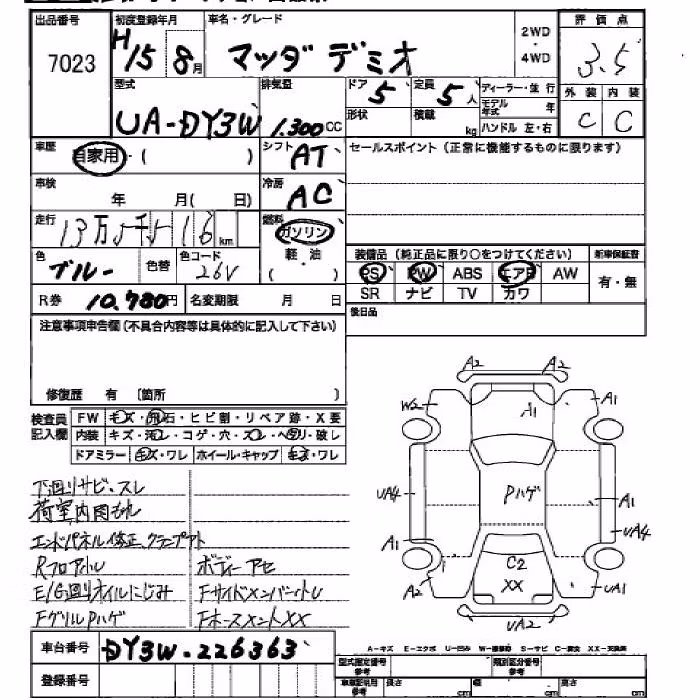 出品番号 初度登録年月 車名・グレード 2WD・4WD 評価点
7023 H15 8月 マツダ デミオ 3.5
型式 排気量 ドア 5 定員 5人 ディーラー・並行 外装 内装
UA-DY3W 1.300CC 形状 積載 kg モデル年式 年 C C
ハンドル 左・右
車歴 自家用・( ) シフト AT セールスポイント(正常に機能するものに限ります)
車検 年 月( 日) 冷房 AC
走行 13万5千516km 燃料 ガソリン・軽・油 ( )
装備品(純正品に限り○をつけてください) 新車保証書
色 ブルー 色替 色コード 26V
PS PW ABS エアB AW 有・無
SR ナビ TV カワ
R券 10.780円 名変期限 月 日
後日品
注意事項申告欄(不具合内容等は具体的に記入して下さい)
修復歴 有 〔箇所 )
検査員記入欄 FW キズ・飛石・ヒビ割・リペア跡・X要
内装 キズ・汚レ・コゲ・穴・スレ・ヘタリ・破レ
ドアミラー キズ・ワレ ホイール・キャップ キズ・ワレ
下廻りサビ・スレ
荷室内
エンドパネル修正 クランプアト
Rフロア ボディーアセ
E/G廻りオイルにじみ Fサイドメンバー
FグリルPハゲ FホースメントXX
車台番号 DY3W-226363
登録番号
A2 A2
W2 A1 A1
UA4 Pハゲ A1
UA4
A1
A2 C2 UA1
XX
UA2
A-キズ E-エクボ U-凹み W-補修跡 S-サビ C-腐食 XX-交換済
型式指定番号 参考 類別区分番号 参考
車庫証明用参考 長さ cm 幅 cm 高さ cm